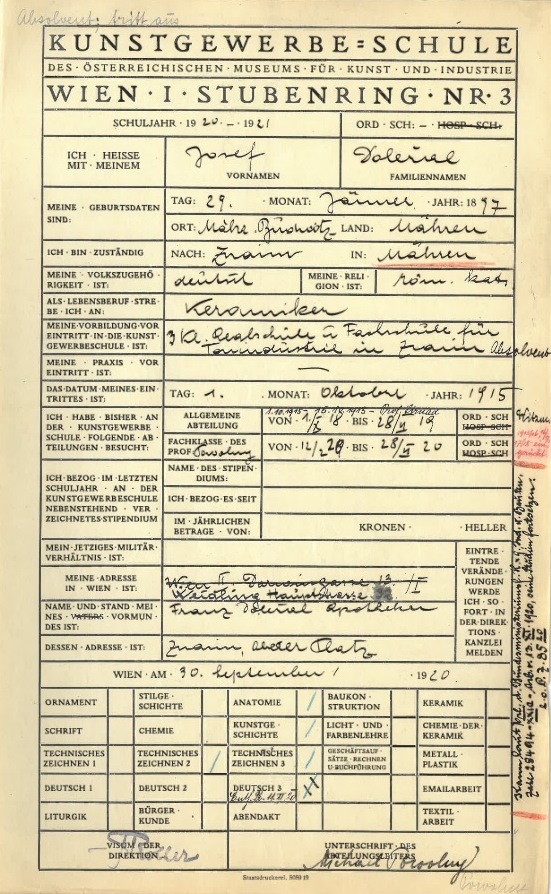 Absolvent; tritt aus
KUNSTGEWERBE=SCHULE
DES · ÖSTERREICHISCHEN · MUSEUMS · FÜR · KUNST · UND · INDUSTRIE
WIEN · I · STUBENRING · NR · 3
SCHULJAHR · 1920 – · 1921 ORD · SCH: – · HOSP · SCH:
ICH · HEISSE MIT · MEINEM Josef Doležal
VORNAMEN FAMILIENNAMEN
MEINE · GEBURTSDATEN SIND: TAG: 29. MONAT: Jänner JAHR: 1897
ORT: Mähr. Budwitz LAND: Mähren
ICH · BIN · ZUSTÄNDIG NACH: Znaim IN: Mähren
MEINE · VOLKSZUGEHÖ RIGKEIT · IST: deutsch MEINE · RELI GION · IST: röm. kat.
ALS · LEBENSBERUF · STRE BE · ICH · AN: Keramiker
MEINE · VORBILDUNG · VOR EINTRITT · IN · DIE · KUNST GEWERBESCHULE · IST: 3 Kl. Realschule u Fachschule für
Tonindustrie in Znaim Absolvent
MEINE · PRAXIS · VOR EINTRITT · IST: —
DAS · DATUM · MEINES · EIN TRITTES · IST: TAG: 1. MONAT: Oktober JAHR: 1915
ICH · HABE · BISHER · AN DER · KUNSTGEWERBE SCHULE · FOLGENDE · AB TEILUNGEN · BESUCHT:
ALLGEMEINE ABTEILUNG VON · 18 · BIS · 28/VI 19 ORD · SCH HOSP · SCH
FACHKLASSE · DES PROF: Powolny VON · BIS · 28/VI 20 ORD · SCH HOSP · SCH
ICH · BEZOG · IM · LETZTEN SCHULJAHR · AN · DER KUNSTGEWERBESCHULE NEBENSTEHEND · VER ZEICHNETES · STIPENDIUM
NAME · DES · STIPEN DIUMS:
ICH · BEZOG · ES · SEIT
IM · JÄHRLICHEN BETRAGE · VON: KRONEN · HELLER
MEIN · JETZIGES · MILITÄR VERHÄLTNIS · IST:
EINTRE TENDE VERÄNDE RUNGEN WERDE ICH · SO FORT · IN DER · DIREK TIONS KANZLEI MELDEN
MEINE · ADRESSE IN · WIEN · IST: Wien II. Darwingasse 13. /I
Weidling Hauptstrasse
NAME · UND · STAND · MEI NES · VATERS · VORMUN DES · IST: Franz Doležal Apotheker
DESSEN · ADRESSE · IST: Znaim, oberer Platz
WIEN · AM · 30. September 1920
ORNAMENT STILGE SCHICHTE ANATOMIE / BAUKON STRUKTION KERAMIK
SCHRIFT CHEMIE KUNSTGE SCHICHTE / LICHT · UND FARBENLEHRE CHEMIE · DER KERAMIK
TECHNISCHES ZEICHNEN 1 TECHNISCHES ZEICHNEN 2 / TECHNISCHES ZEICHNEN 3 GESCHÄFTSAUF SÄTZE · RECHNEN U · BUCHFÜHRUNG METALL PLASTIK
DEUTSCH 1 DEUTSCH 2 DEUTSCH 3 EMAILARBEIT
LITURGIK BÜRGER KUNDE ABENDAKT TEXTIL ARBEIT
VISUM · DER DIREKTION UNTERSCHRIFT · DES ABTEILUNGSLEITERS
Michael Powolny
Staatsdruckerei. 5059 19
Powolny